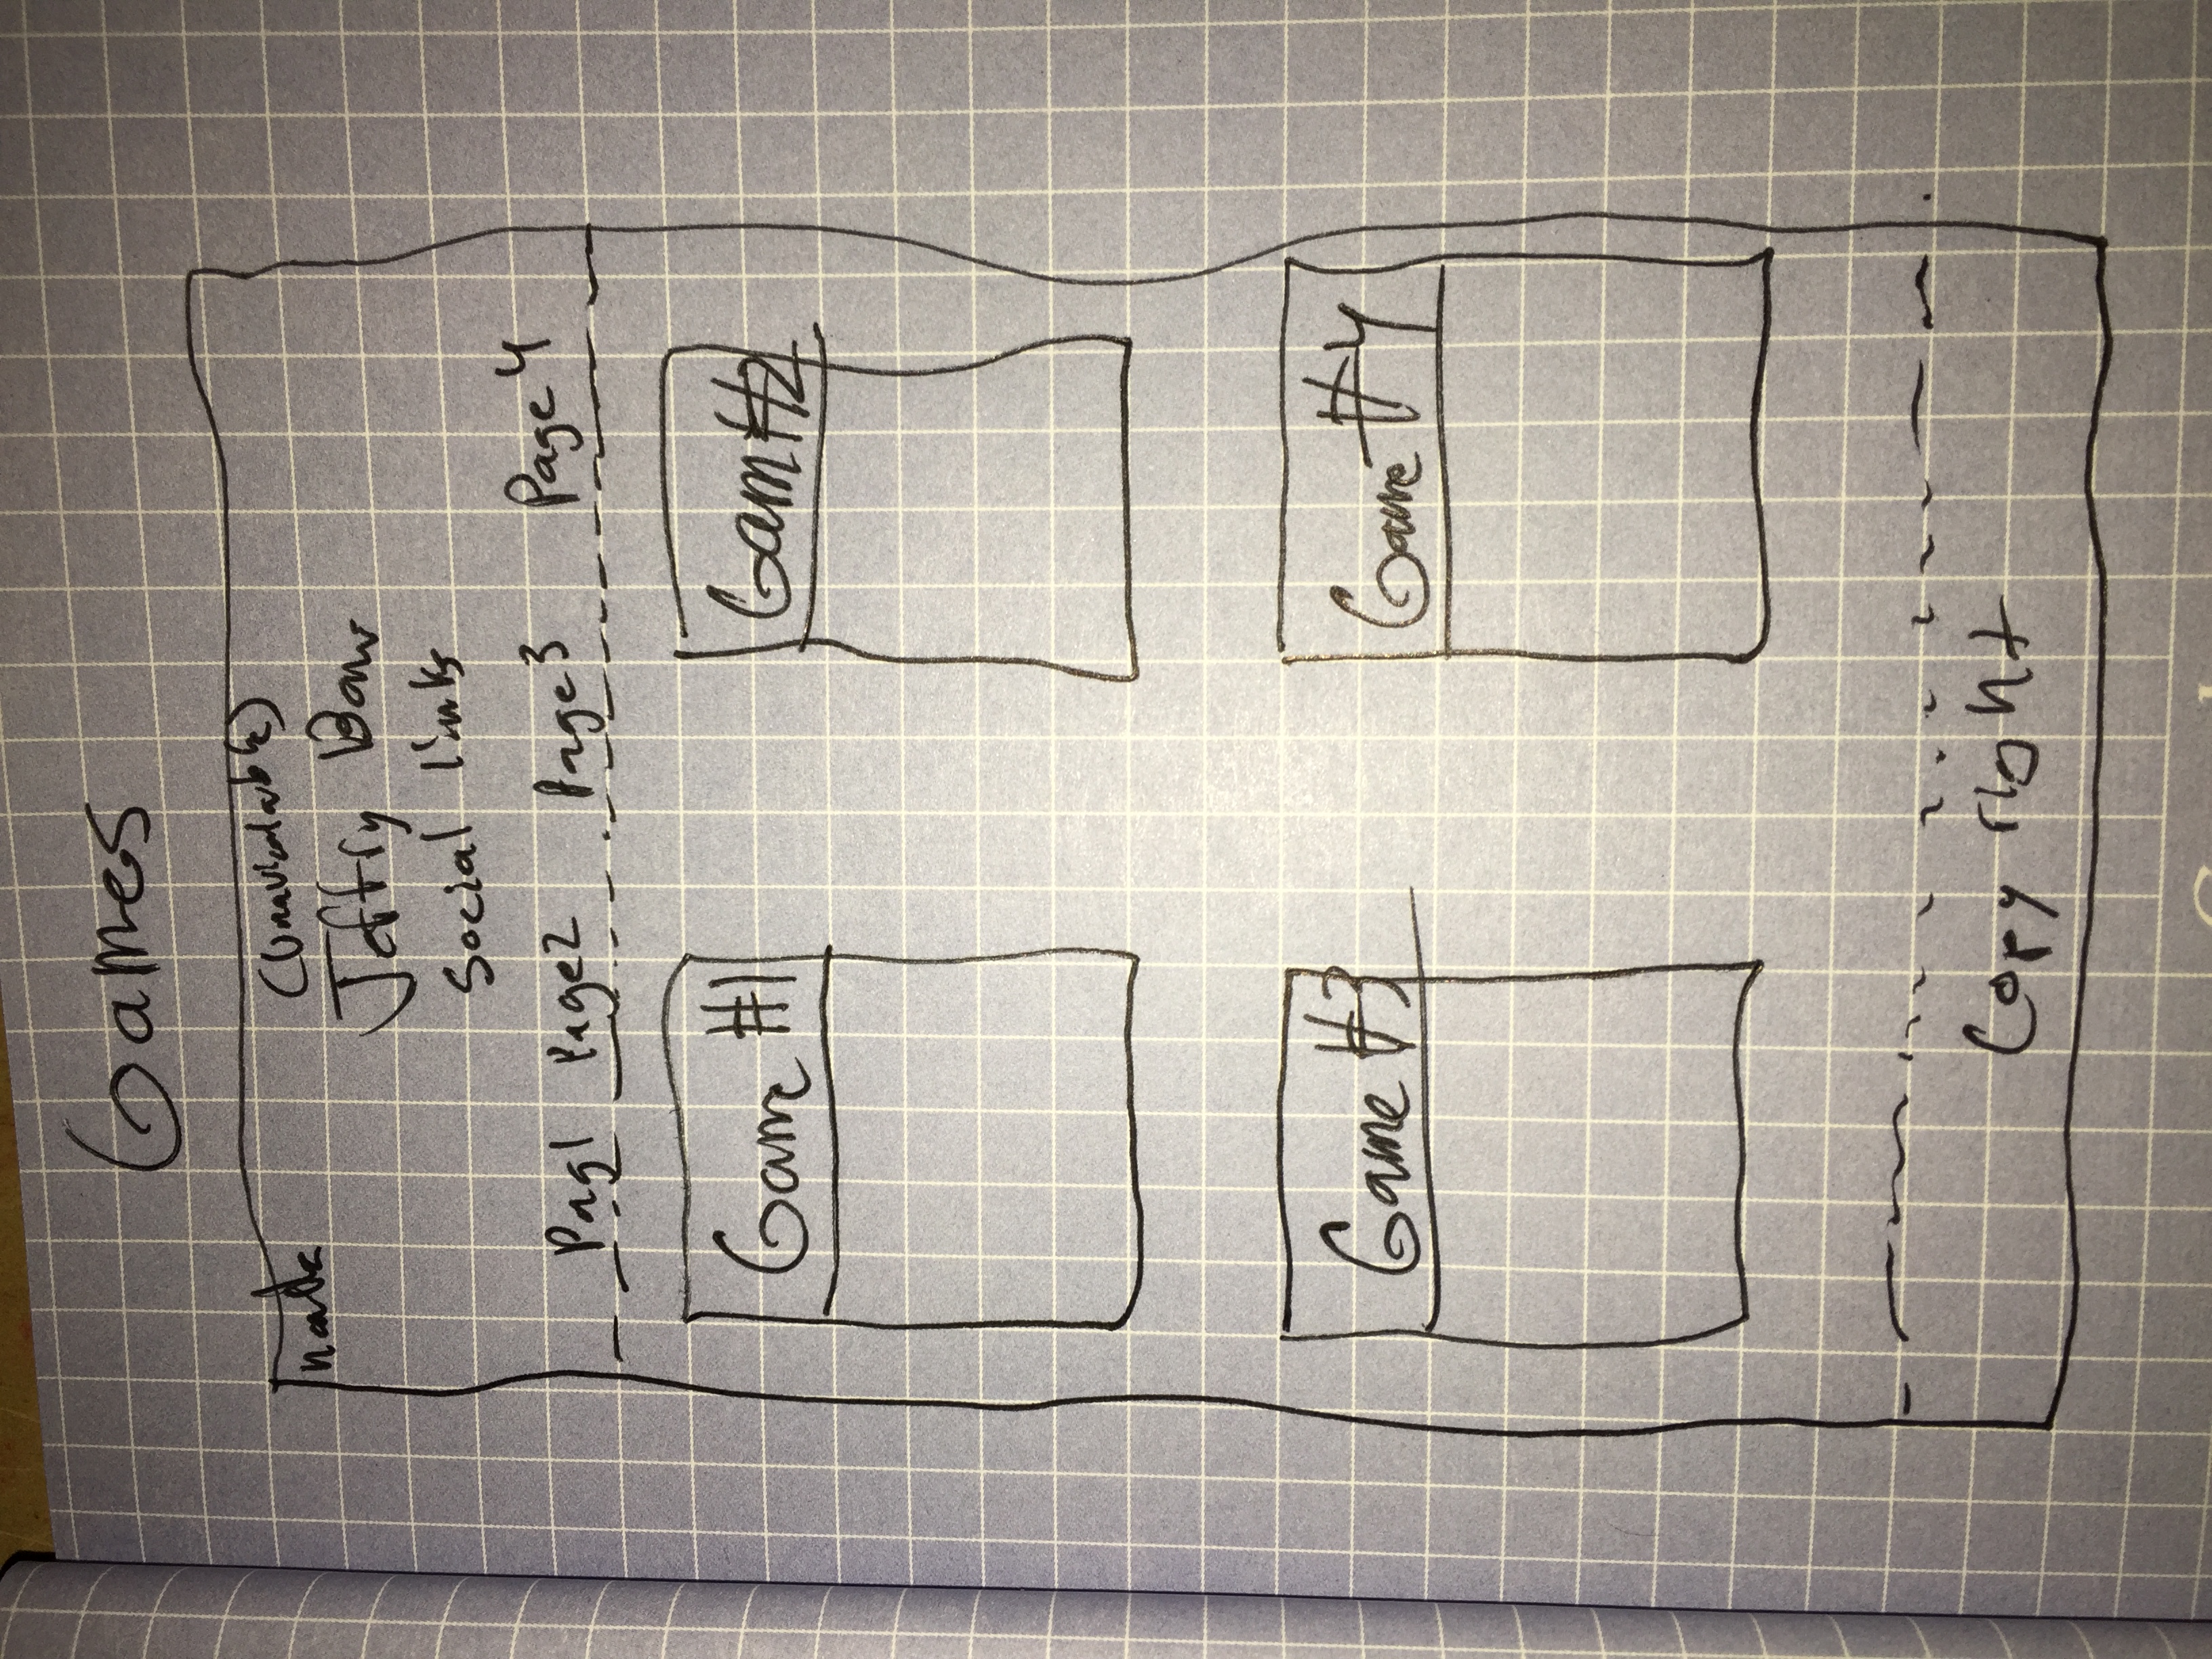 Games
(Unavialable)
Jeffry
Social links
Pag1 Page2 Page3 Page4
Game #1 Gam #2
Game #3 Game #4
Copy right